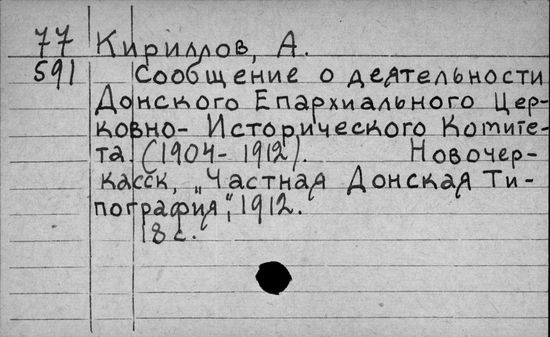 77 Кириллов, А.
591 Сообщение о деятельности
Донского Епархиального Цер-
ковно- Исторического Комите-
та. (1904-1912). Новочер-
касск, „Частная Донская Ти-
пография", 1912.
18 с.